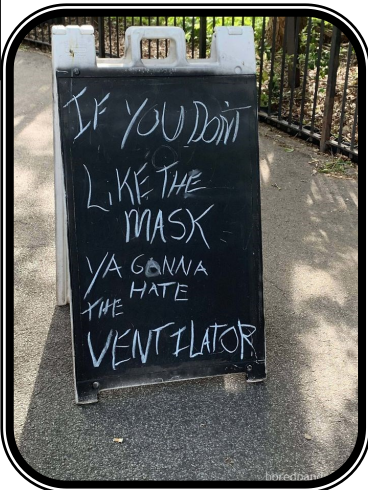 IF YOU DON'T
LIKE THE
MASK
YA GONNA
HATE
THE
VENTILATOR